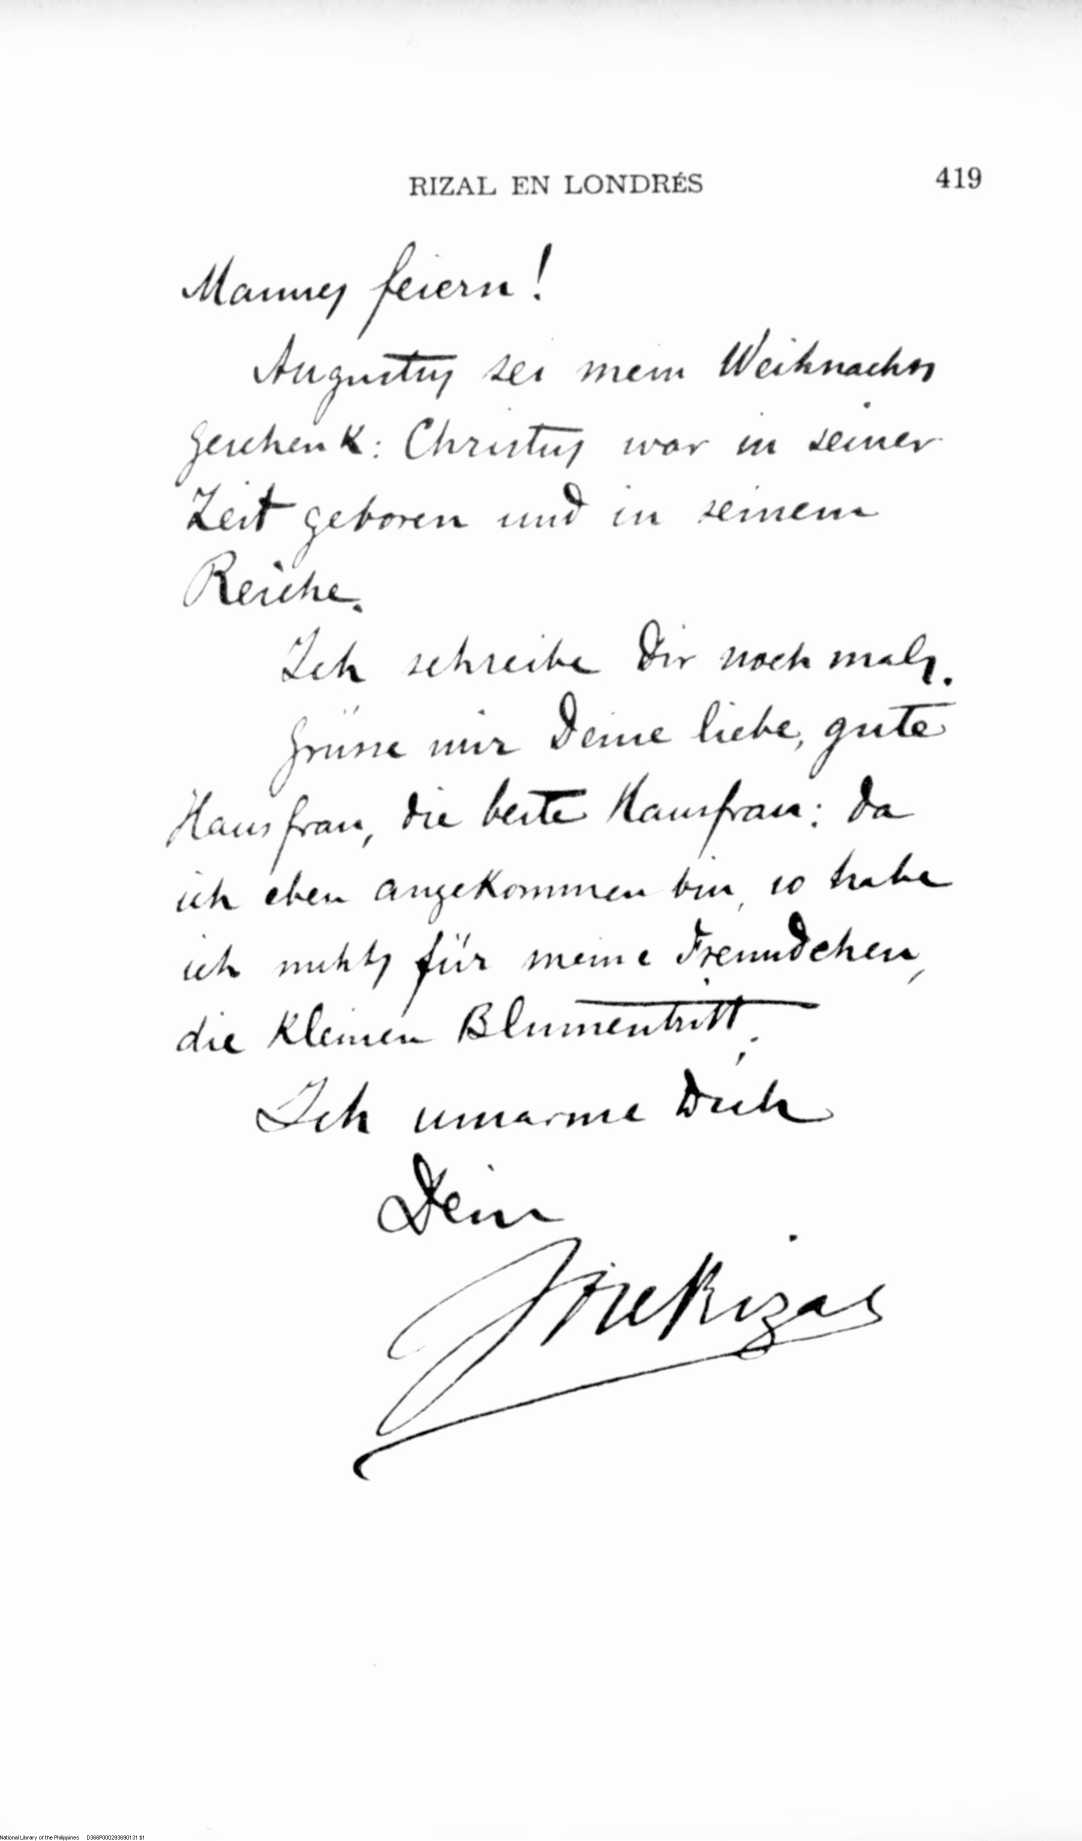 RIZAL EN LONDRÉS 419
Mannes feiern!
Augustus sei mein Weihnachts
geschenk: Christus war in seiner
Zeit geboren und in seinem
Reiche.
Ich schreibe Dir noch mals.
Grüsse mir Deine liebe, gute
Hausfrau, die beste Hausfrau: da
ich eben angekommen bin, so habe
ich nichts für meine Freundchen,
die Kleinen Blumentritt.
Ich umarme Dich
Dein
Jose Rizal
National Library of the Philippines